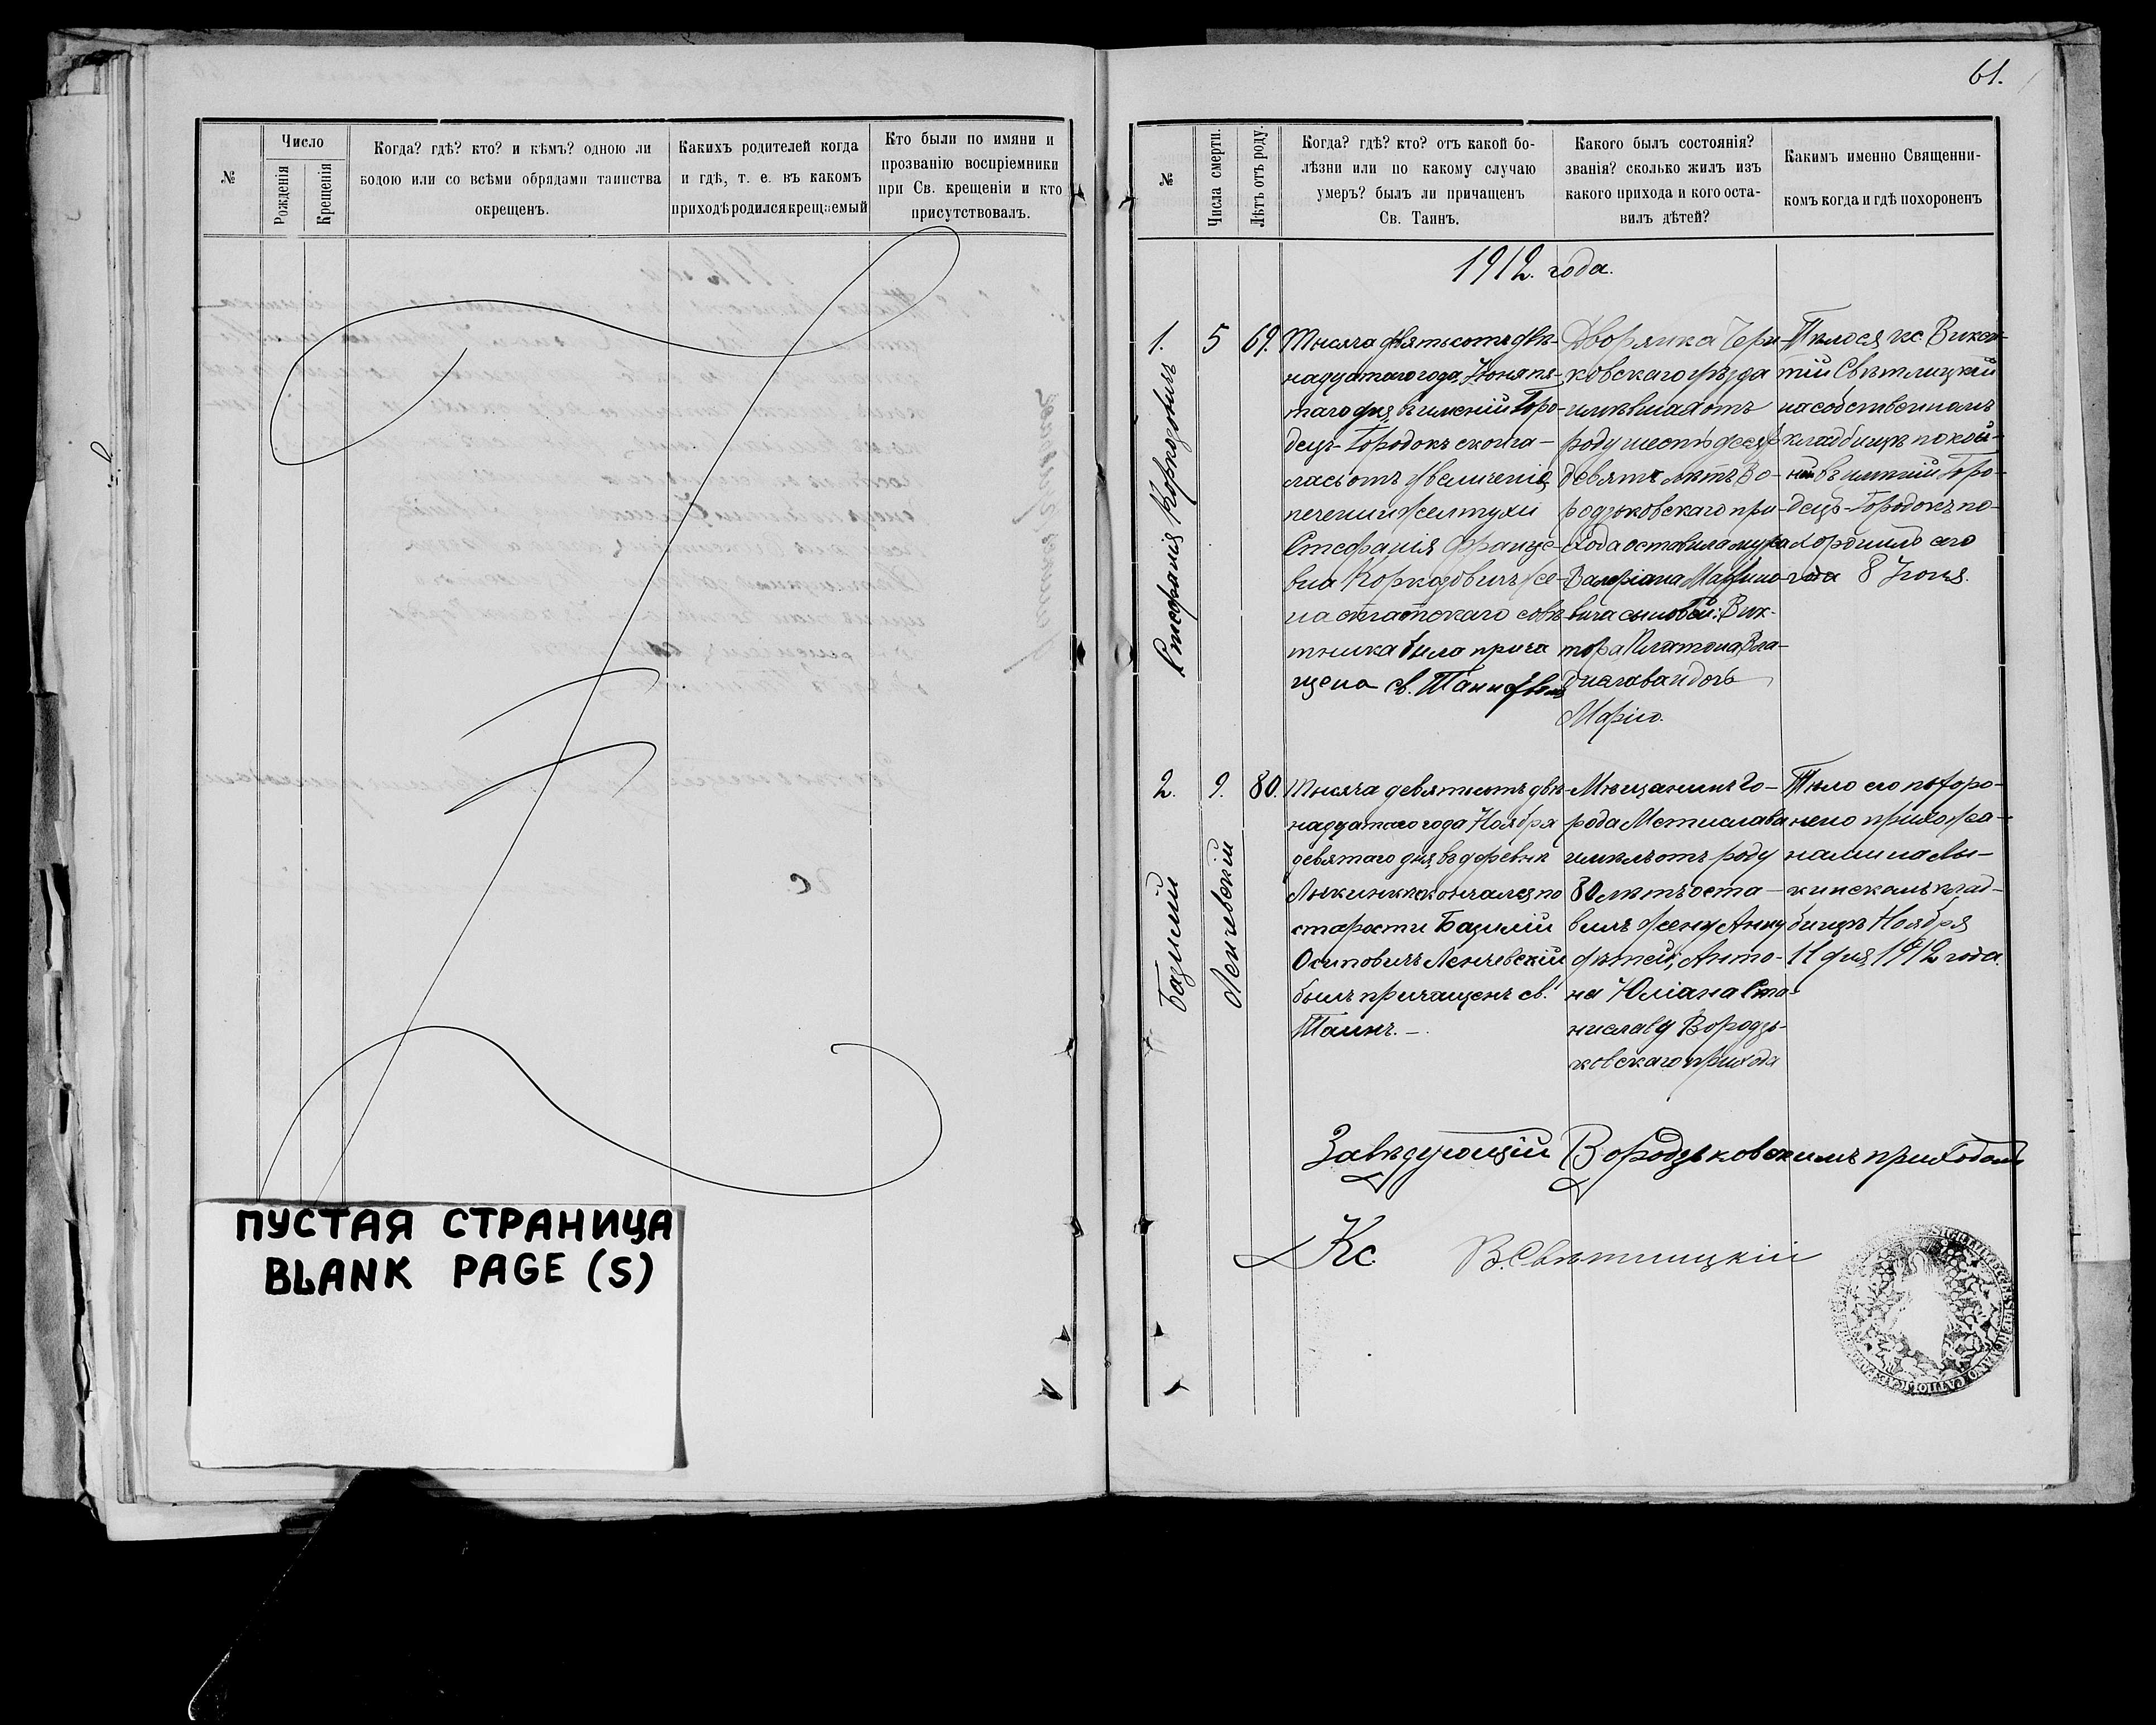 61.
№
Число
Рожденія
Крещенія
Когда? гдѣ? кто? и кѣмъ? одною ли
водою или со всѣми обрядами таинства
окрещенъ.
Какихъ родителей когда
и гдѣ, т. е. въ какомъ
приходѣ родился крещаемый
Кто были по имяни и
прозванію воспріемники
при Св. крещеніи и кто
присутствовалъ.
ПУСТАЯ СТРАНИЦА
BLANK PAGE (S)
№
Числа смерти.
Лѣтъ отъ роду.
Когда? гдѣ? кто? отъ какой бо-
лѣзни или по какому случаю
умеръ? былъ ли причащенъ
Св. Таинъ.
Какого былъ состоянія?
званія? сколько жилъ изъ
какого прихода и кого оста-
вилъ дѣтей?
Какимъ именно Священни-
комъ когда и гдѣ похороненъ
1912. года.
1.
Стефанія Коркозовичъ
5
69.
Тысяча девятьсотъ двѣ-
надцатаго года, Іюня пя-
таго дня въ имѣніи Горо-
децъ-Городокъ сконча-
лась отъ увеличенія
печени и желтухи
Стефанія Францe-
вна Коркозовичъ же-
на статскаго совѣ-
тника была прича
щена св. Таинствъ
Дворянка Чери-
ковскаго уѣзда
имѣвшая отъ
роду шестьдесятъ
девять лѣтъ Во-
родзьковскаго при-
хода оставила мужа
Валеріана
вича сыновей: Вик-
тора, Платона, Вла-
дислава и дочь
Марію.
Тѣло ея кс. Викен-
тій Свѣтлицкій
на собственномъ
кладбищѣ покой-
ной въ имѣніи Горо-
децъ-Городокъ по-
хоронилъ сего
года 8 Іюня.
2.
Базилій
Ленчевскій
9.
80.
Тысяча девятьсотъ двѣ-
надцатаго года Ноября
девятаго дня въ деревнѣ
скончался по
старости Базилій
Осиповичъ Ленчевскій
былъ причащенъ св.
Таинъ. —
Мѣщанинъ го-
рода Мстиславля
имѣлъ отъ роду
80 лѣтъ оста-
вилъ жену Анну
дѣтей, Анто-
на Юліана Ста-
ниславу Вородзь-
ковскаго прихода
Тѣло его похоро-
нено прихожа-
нами на Лы-
кинскомъ клад-
бищѣ Ноября
11 дня 1912 года.
Завѣдующій Вородзьковскимъ приходомъ
Кс. В. Свѣтлицкій